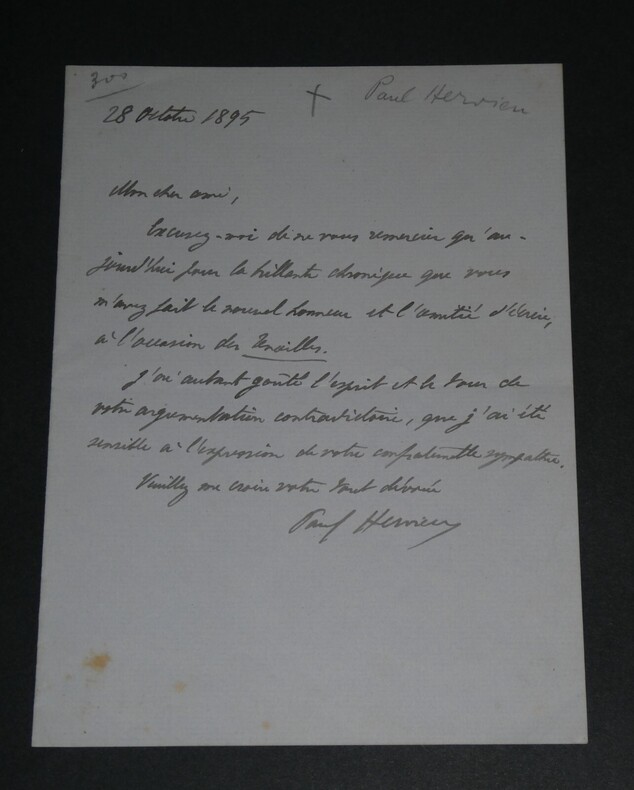 300
Paul Hervieu
28 Octobre 1895
Mon cher ami,
Excusez-moi de ne vous remercier qu'au-
jourd'hui pour la brillante chronique que vous
m'avez fait le nouvel honneur et l'amitié d'écrire,
à l'occasion des Tenailles.
J'ai autant goûté l'esprit et le tour de
votre argumentation contradictoire, que j'ai été
sensible à l'expression de votre confraternelle sympathie.
Veuillez me croire votre tout dévoué
Paul Hervieu